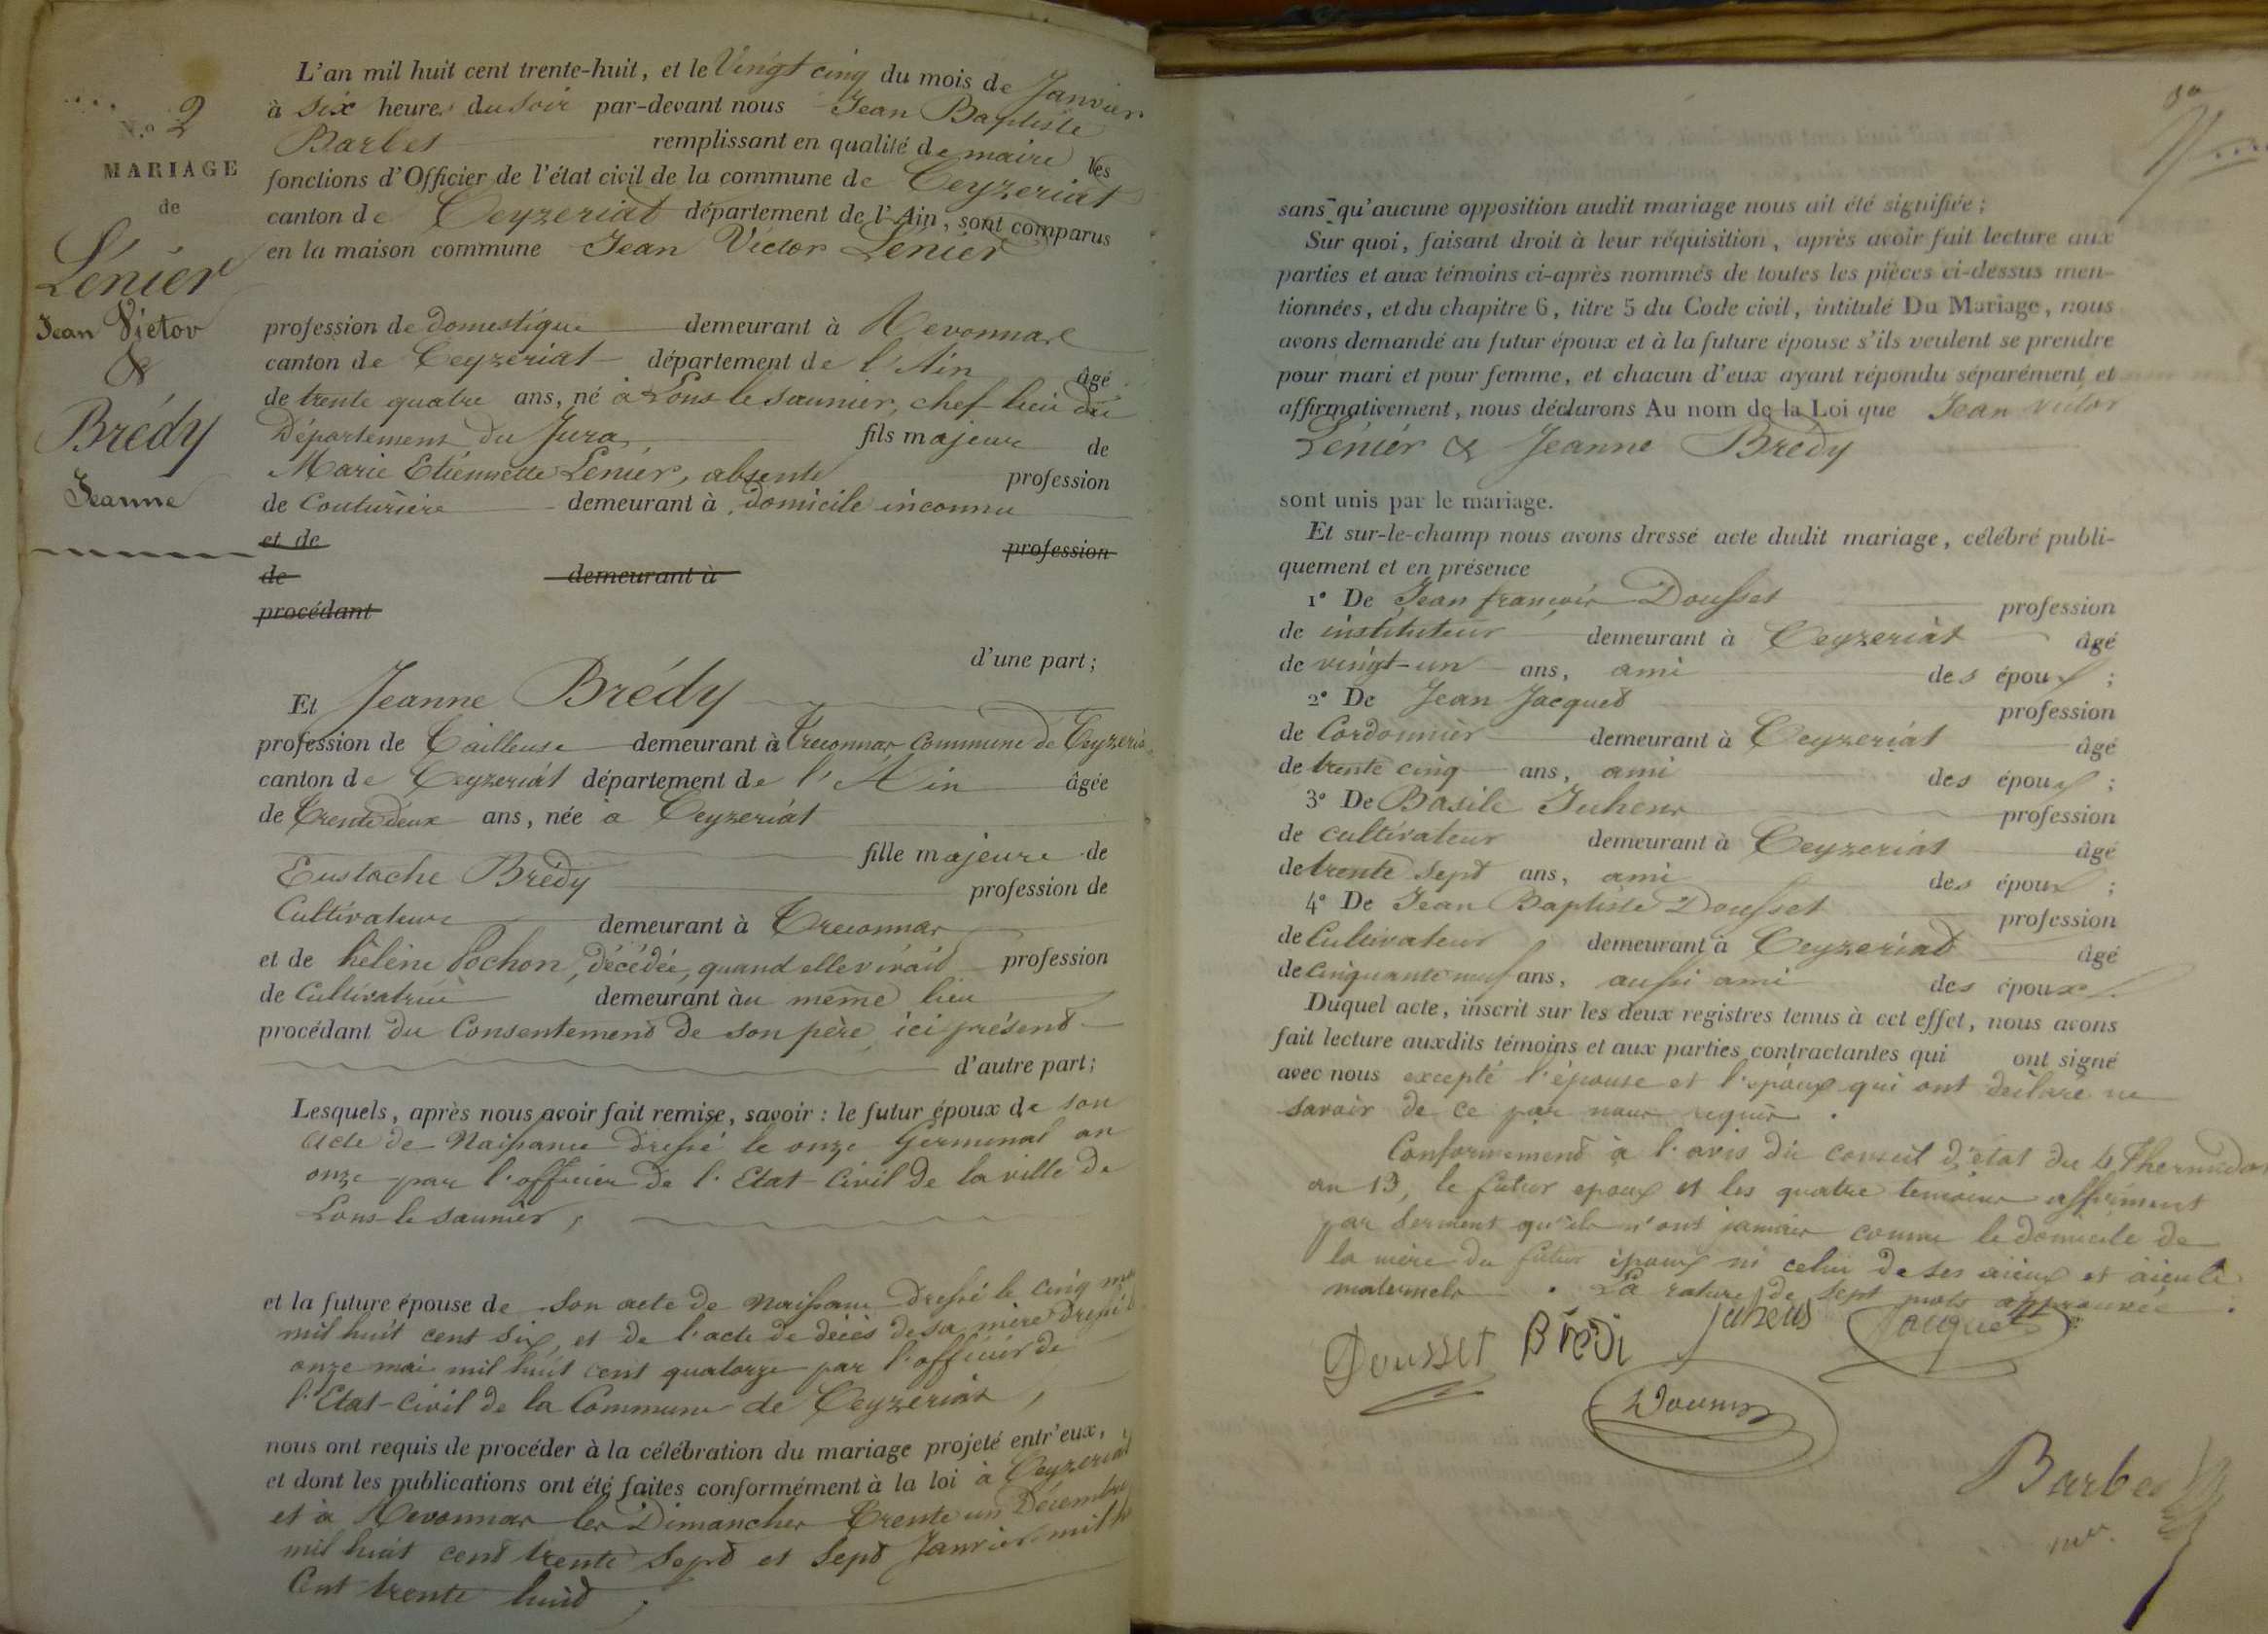 N.o 2
MARIAGE
de
Lénier
Jean Victor
&
Brédy
Jeanne
L'an mil huit cent trente-huit, et le Vingt cinq du mois de Janvier
à Six heures du Soir par-devant nous Jean Baptiste
Barbet remplissant en qualité de maire les
fonctions d'Officier de l'état civil de la commune de Ceyzeriat
canton de Ceyzeriat département de l'Ain, sont comparus
en la maison commune Jean Victor Lenier
profession de domestique demeurant à Revonnas
canton de Ceyzeriat département de l'Ain âgé
de trente quatre ans, né à Lons le Saunier, chef lieu du
Département du Jura, fils majeur de
Marie Etiennette Lenier, absente profession
de Couturière demeurant à domicile inconnu
et de profession
de demeurant à
procédant
d'une part;
Et Jeanne Brédy
profession de Tailleuse demeurant à Treconnas Commune de Ceyzeria
canton de Ceyzeriát département de l'Ain âgée
de Trente deux ans, née à Ceyzeriát
fille majeure de
Eustache Brédy profession de
Cultivateur demeurant à Treconnas
et de hélène Pochon, décédée, quand elle vivait profession
de Cultivatrice demeurant àu même lieu
procédant du Consentement de son père ici présent
d'autre part;
Lesquels, après nous avoir fait remise, savoir : le futur époux de son
acte de Naissance dressé le onze Germinal an
onze par l'officier de l'Etat-Civil de la ville de
Lons-le saunier,
et la future épouse de son acte de naissance dressé le cinq mai
mil huit cent six, et de l'acte de décès de sa mère dressé
onze mai mil huit cent quatorze par l'officier de
l'Etat-Civil de la Commune de Ceyzeriat,
nous ont requis de procéder à la célébration du mariage projeté entr'eux,
et dont les publications ont été faites conformément à la loi à Ceyzeriat
et à Revonnas les Dimanches Trente un Décembre
mil huit cent trente Sept et Sept Janvier mil h
Cent trente huit ;
sans qu'aucune opposition audit mariage nous ait été signifiée;
Sur quoi, faisant droit à leur réquisition, après avoir fait lecture aux
parties et aux témoins ci-après nommés de toutes les pièces ci-dessus men-
tionnées, et du chapitre 6, titre 5 du Code civil, intitulé Du Mariage, nous
avons demandé au futur époux et à la future épouse s'ils veulent se prendre
pour mari et pour femme, et chacun d'eux ayant répondu séparément et
affirmativement, nous déclarons Au nom de la Loi que Jean victor
Lénier & Jeanne Brédy
sont unis par le mariage.
Et sur-le-champ nous avons dressé acte dudit mariage, célébré publi-
quement et en présence
1° De Jean françois Dousset profession
de instituteur demeurant à Ceyzeriát âgé
de vingt-un ans, ami des époux ;
2° De Jean Jacquet profession
de Cordonnier demeurant à Ceyzeriát âgé
de trente cinq ans, ami des époux ;
3° De Basile Juhens profession
de cultivateur demeurant à Ceyzeriát âgé
de trente sept ans, ami des époux ;
4° De Jean Baptiste Dousset profession
de Cultivateur demeurant à Ceyzeriat âgé
de Cinquante neuf ans, aussi ami des époux.
Duquel acte, inscrit sur les deux registres tenus à cet effet, nous avons
fait lecture auxdits témoins et aux parties contractantes qui ont signé
avec nous excepté l'épouse et l'époux qui ont déclaré ne
savoir de ce par nous requis.
Conformément à l'avis du conseil d'état du 4 Thermidor
an 13, le futur epoux et les quatre temoins affirment
par serment qu'ils n'ont jamais connu le domicile de
la mère du futur époux ni celui de ses aieux et aieule
maternels. La rature de sept mots approuvée.
Dousset Brédi Juhens Jacquet
Barbet